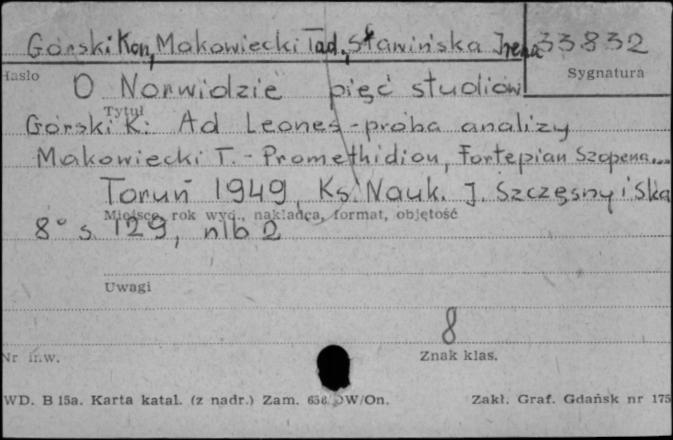 Górski Kon, Makowiecki Tad., Sławińska Irena 33832
Hasło Sygnatura
O Norwidzie pięć studiów
Tytuł
Górski K: Ad Leones - próba analizy
Makowiecki T. - Promethidion, Fortepian Szopena...
Toruń 1949, Ks. Nauk. J. Szczęsny i Ska
Miejsce, rok wyd., nakładca, format, objętość
8° s. 129, nlb 2
Uwagi
8
Nr inw. Znak klas.
WD. B 15a. Karta katal. (z nadr.) Zam. W/On. Zakł. Graf. Gdańsk nr 175